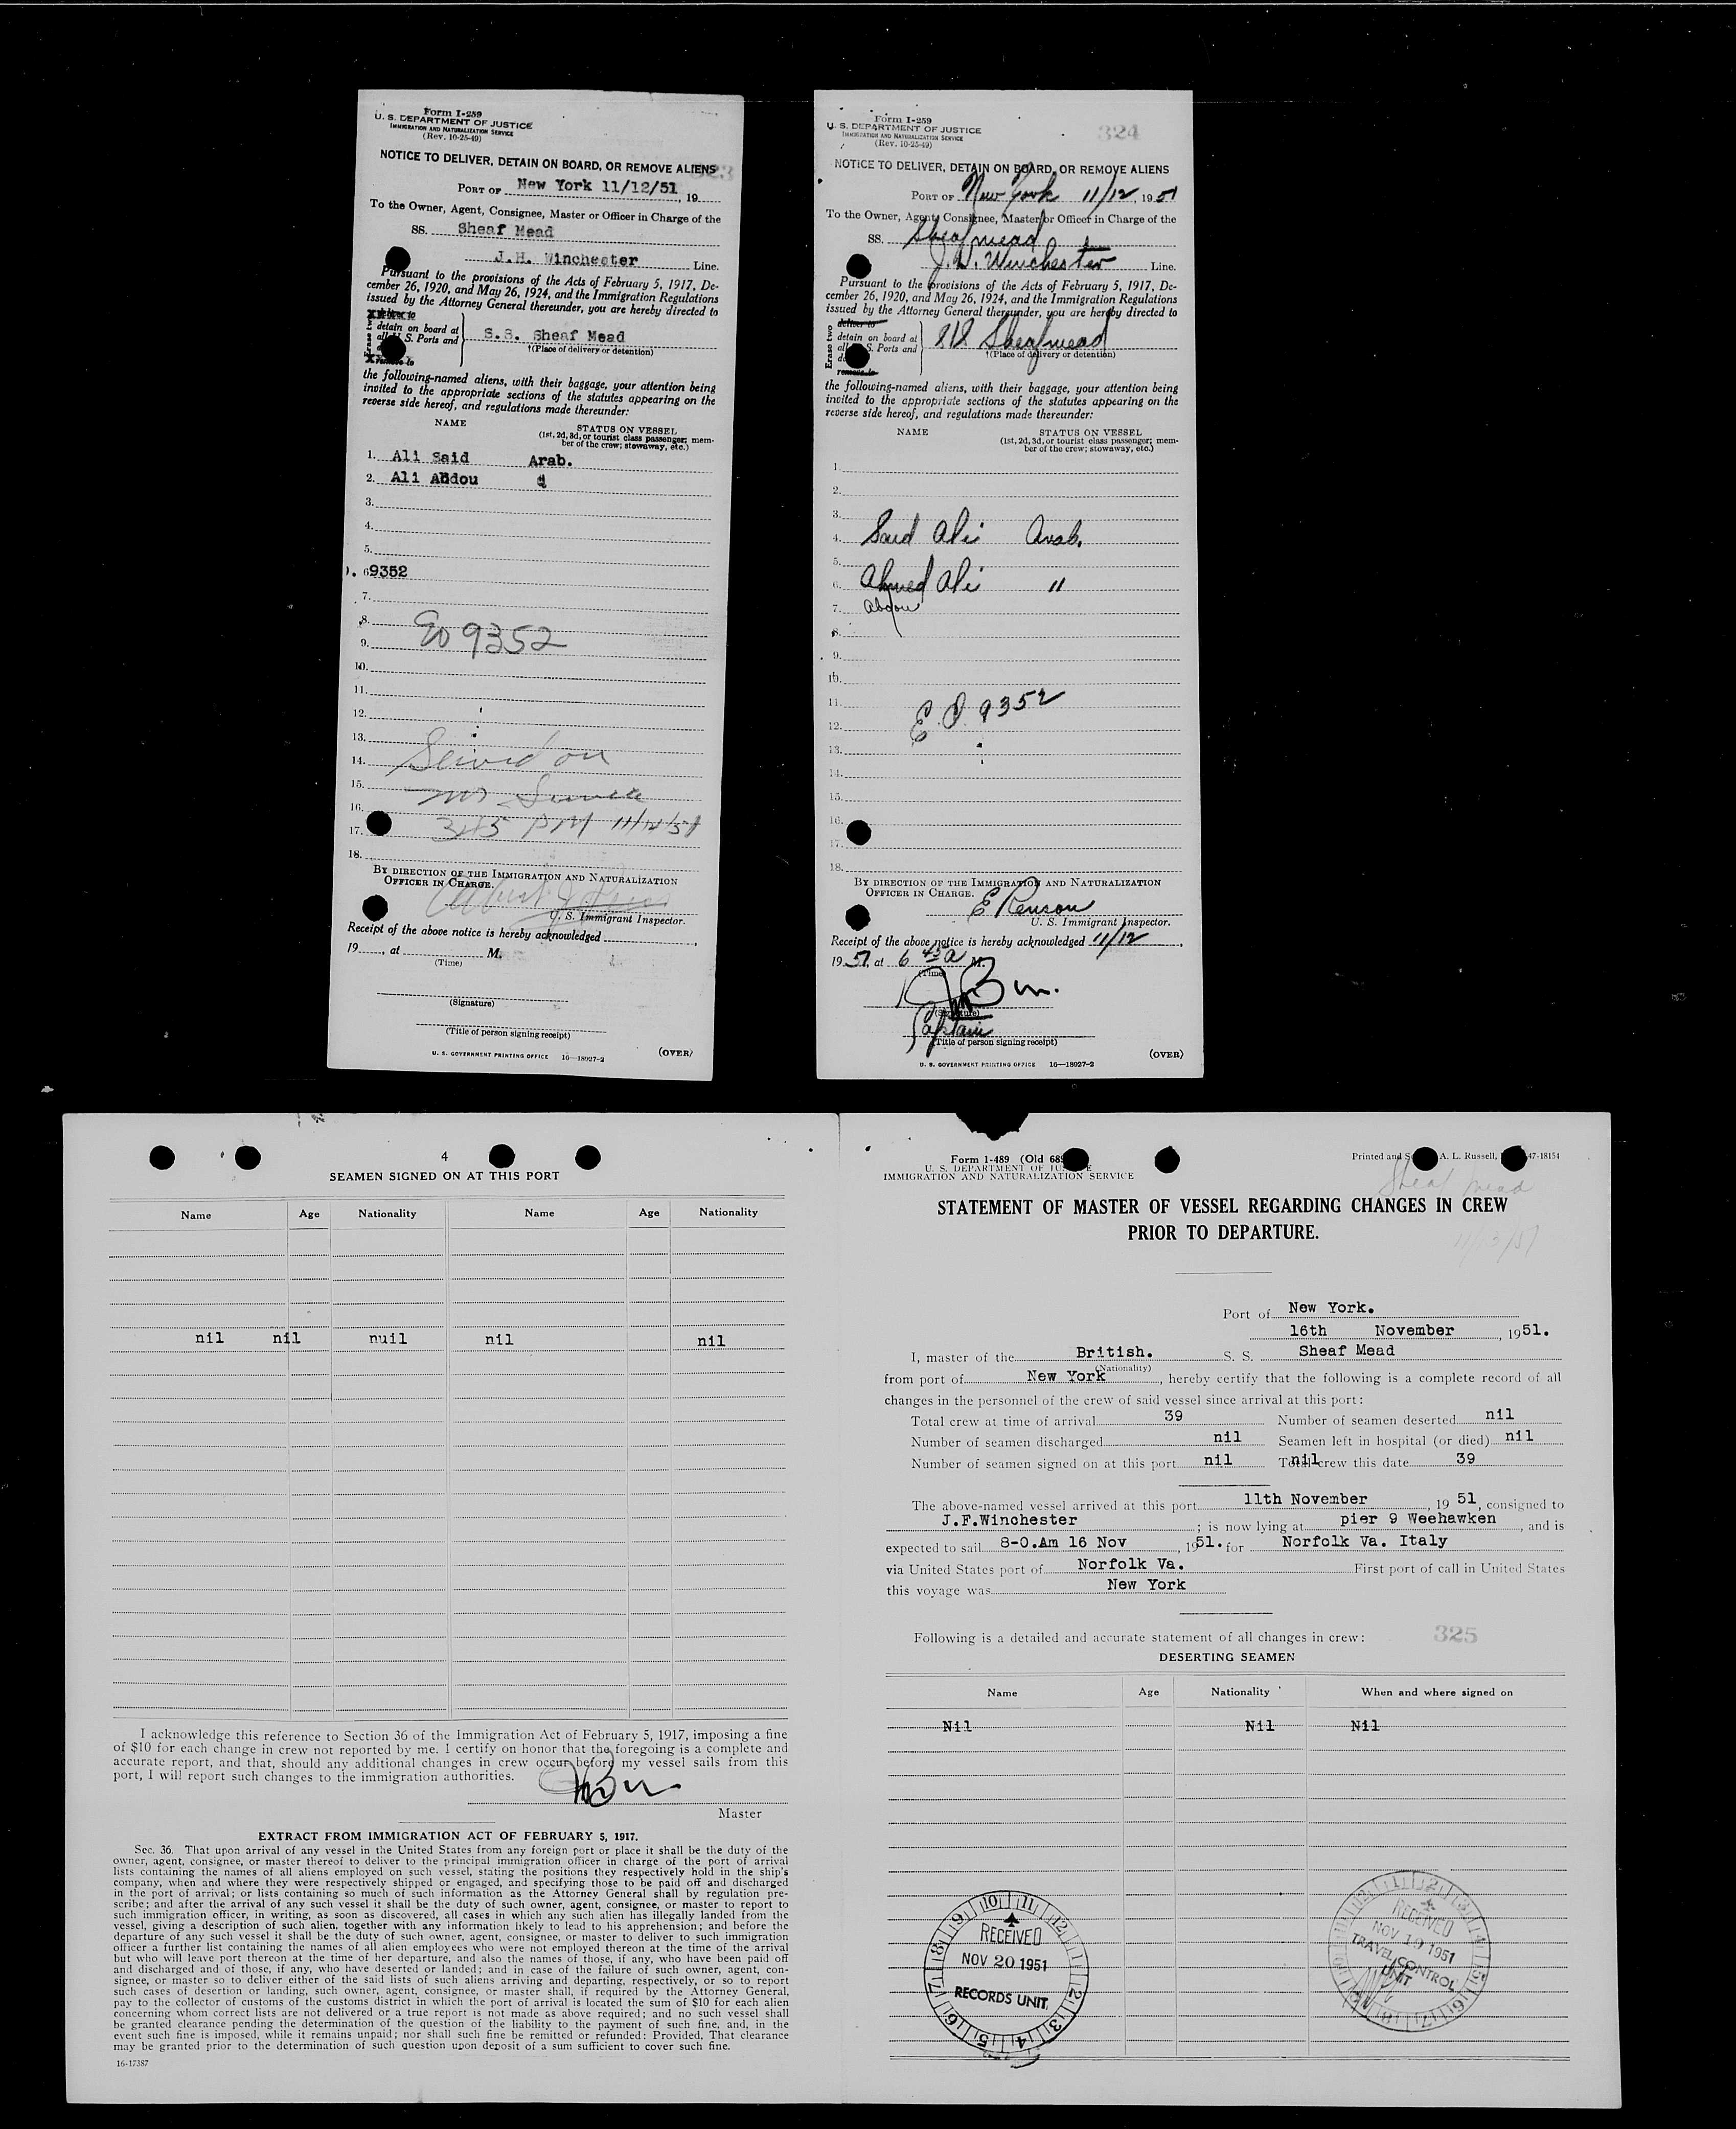 Form I-259
U. S. DEPARTMENT OF JUSTICE
IMMIGRATION AND NATURALIZATION SERVICE
(Rev. 10-25-49)
323
NOTICE TO DELIVER, DETAIN ON BOARD, OR REMOVE ALIENS
PORT OF New York 11/12/51, 19
To the Owner, Agent, Consignee, Master or Officer in Charge of the
SS. Sheaf Mead
J.H. Winchester Line.
Pursuant to the provisions of the Acts of February 5, 1917, De-
cember 26, 1920, and May 26, 1924, and the Immigration Regulations
issued by the Attorney General thereunder, you are hereby directed to
detain on board at
all S. Ports and
S.S. Sheaf Mead
†(Place of delivery or detention)
remove to
the following-named aliens, with their baggage, your attention being
invited to the appropriate sections of the statutes appearing on the
reverse side hereof, and regulations made thereunder:
NAME STATUS ON VESSEL
(1st, 2d, 3d, or tourist class passenger; mem-
ber of the crew; stowaway, etc.)
1. Ali Said Arab.
2. Ali Abdou "
3.
4.
5.
6. 9352
7.
8.
9. EO 9352
10.
11.
12.
13.
14. Served on
15. Mr
16.
17. 345 PM 11/12/51
18.
BY DIRECTION OF THE IMMIGRATION AND NATURALIZATION
OFFICER IN CHARGE.
U. S. Immigrant Inspector.
Receipt of the above notice is hereby acknowledged
19, at M.
(Time)
(Signature)
(Title of person signing receipt)
U. S. GOVERNMENT PRINTING OFFICE 16—18927-2 (OVER)
Form I-259
U. S. DEPARTMENT OF JUSTICE
IMMIGRATION AND NATURALIZATION SERVICE
(Rev. 10-25-49)
324
NOTICE TO DELIVER, DETAIN ON BOARD, OR REMOVE ALIENS
PORT OF New York 11/12, 1951
To the Owner, Agent, Consignee, Master or Officer in Charge of the
SS. Sheafmead
J. H. Winchester Line.
Pursuant to the provisions of the Acts of February 5, 1917, De-
cember 26, 1920, and May 26, 1924, and the Immigration Regulations
issued by the Attorney General thereunder, you are hereby directed to
Erase two
deliver to
detain on board at
all S. Ports and
SS Sheafmead
†(Place of delivery or detention)
remove to
the following-named aliens, with their baggage, your attention being
invited to the appropriate sections of the statutes appearing on the
reverse side hereof, and regulations made thereunder:
NAME STATUS ON VESSEL
(1st, 2d, 3d, or tourist class passenger; mem-
ber of the crew; stowaway, etc.)
1.
2.
3.
4. Said Ali Arab.
5.
6. Ahmed Ali "
7. Abdou
8.
9.
10.
11.
12. E.O. 9352
13.
14.
15.
16.
17.
18.
BY DIRECTION OF THE IMMIGRATION AND NATURALIZATION
OFFICER IN CHARGE.
E Renson
U. S. Immigrant Inspector.
Receipt of the above notice is hereby acknowledged 11/12,
1951, at 6 45 a M.
(Time)
(Signature)
Captain
(Title of person signing receipt)
U. S. GOVERNMENT PRINTING OFFICE 16—18927-2 (OVER)
4
SEAMEN SIGNED ON AT THIS PORT
Name Age Nationality Name Age Nationality
nil nil nuil nil nil
I acknowledge this reference to Section 36 of the Immigration Act of February 5, 1917, imposing a fine
of $10 for each change in crew not reported by me. I certify on honor that the foregoing is a complete and
accurate report, and that, should any additional changes in crew occur before my vessel sails from this
port, I will report such changes to the immigration authorities.
Master
EXTRACT FROM IMMIGRATION ACT OF FEBRUARY 5, 1917.
Sec. 36. That upon arrival of any vessel in the United States from any foreign port or place it shall be the duty of the
owner, agent, consignee, or master thereof to deliver to the principal immigration officer in charge of the port of arrival
lists containing the names of all aliens employed on such vessel, stating the positions they respectively hold in the ship's
company, when and where they were respectively shipped or engaged, and specifying those to be paid off and discharged
in the port of arrival; or lists containing so much of such information as the Attorney General shall by regulation pre-
scribe; and after the arrival of any such vessel it shall be the duty of such owner, agent, consignee, or master to report to
such immigration officer, in writing, as soon as discovered, all cases in which any such alien has illegally landed from the
vessel, giving a description of such alien, together with any information likely to lead to his apprehension; and before the
departure of any such vessel it shall be the duty of such owner, agent, consignee, or master to deliver to such immigration
officer a further list containing the names of all alien employees who were not employed thereon at the time of the arrival
but who will leave port thereon at the time of her departure, and also the names of those, if any, who have been paid off
and discharged and of those, if any, who have deserted or landed; and in case of the failure of such owner, agent, con-
signee, or master so to deliver either of the said lists of such aliens arriving and departing, respectively, or so to report
such cases of desertion or landing, such owner, agent, consignee, or master shall, if required by the Attorney General,
pay to the collector of customs of the customs district in which the port of arrival is located the sum of $10 for each alien
concerning whom correct lists are not delivered or a true report is not made as above required; and no such vessel shall
be granted clearance pending the determination of the question of the liability to the payment of such fine, and, in the
event such fine is imposed, while it remains unpaid; nor shall such fine be remitted or refunded: Provided, That clearance
may be granted prior to the determination of such question upon deposit of a sum sufficient to cover such fine.
16-17387
Form I-489 (Old 689
U. S. DEPARTMENT OF JUSTICE
IMMIGRATION AND NATURALIZATION SERVICE
Printed and S A. L. Russell, 47-18154
Sheaf Mead
11/13/51
STATEMENT OF MASTER OF VESSEL REGARDING CHANGES IN CREW
PRIOR TO DEPARTURE.
Port of New York.
16th November, 1951.
I, master of the British. S. S. Sheaf Mead
(Nationality)
from port of New York, hereby certify that the following is a complete record of all
changes in the personnel of the crew of said vessel since arrival at this port:
Total crew at time of arrival 39 Number of seamen deserted nil
Number of seamen discharged nil Seamen left in hospital (or died) nil
Number of seamen signed on at this port nil nil Total crew this date 39
The above-named vessel arrived at this port 11th November, 1951, consigned to
J.F.Winchester; is now lying at pier 9 Weehawken, and is
expected to sail 8-0.Am 16 Nov, 1951. for Norfolk Va. Italy
via United States port of Norfolk Va. First port of call in United States
this voyage was New York
Following is a detailed and accurate statement of all changes in crew:
325
DESERTING SEAMEN
Name Age Nationality When and where signed on
Nil Nil Nil
RECEIVED
NOV 20 1951
RECORDS UNIT
RECEIVED
NOV 19 1951
TRAVEL CONTROL
UNIT